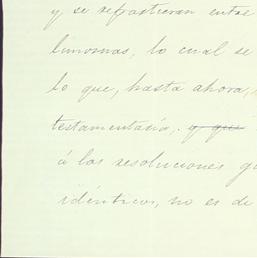 y se repartieran entre
limosnas, lo cual se
lo que, hasta ahora,
testamentaria, y que
á las resoluciones
idénticos, no es de